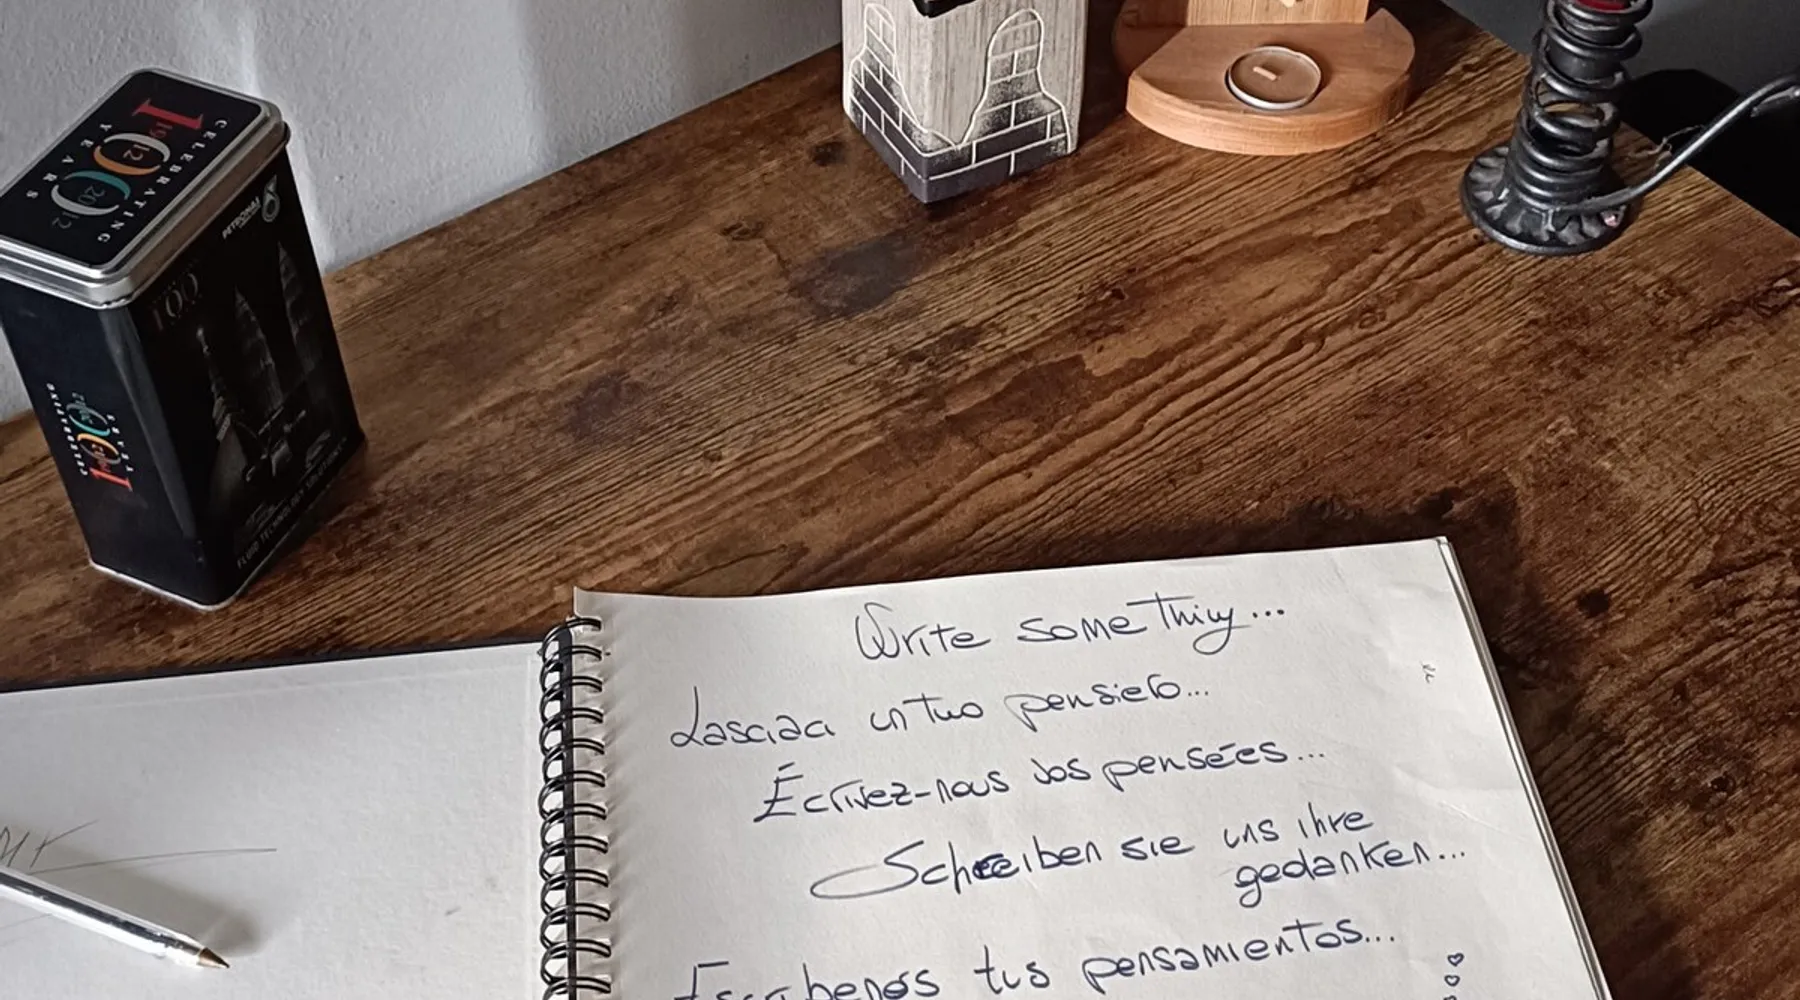 CELEBRATING
100
1912
2012
YEARS
PETRONAS
100
FLUID TECHNOLOGY SOLUTIONS
Write something...
Lasciaci un tuo pensiero...
Écrivez-nous vos pensées...
Schreiben sie uns ihre
gedanken...
Escribenos tus pensamientos...